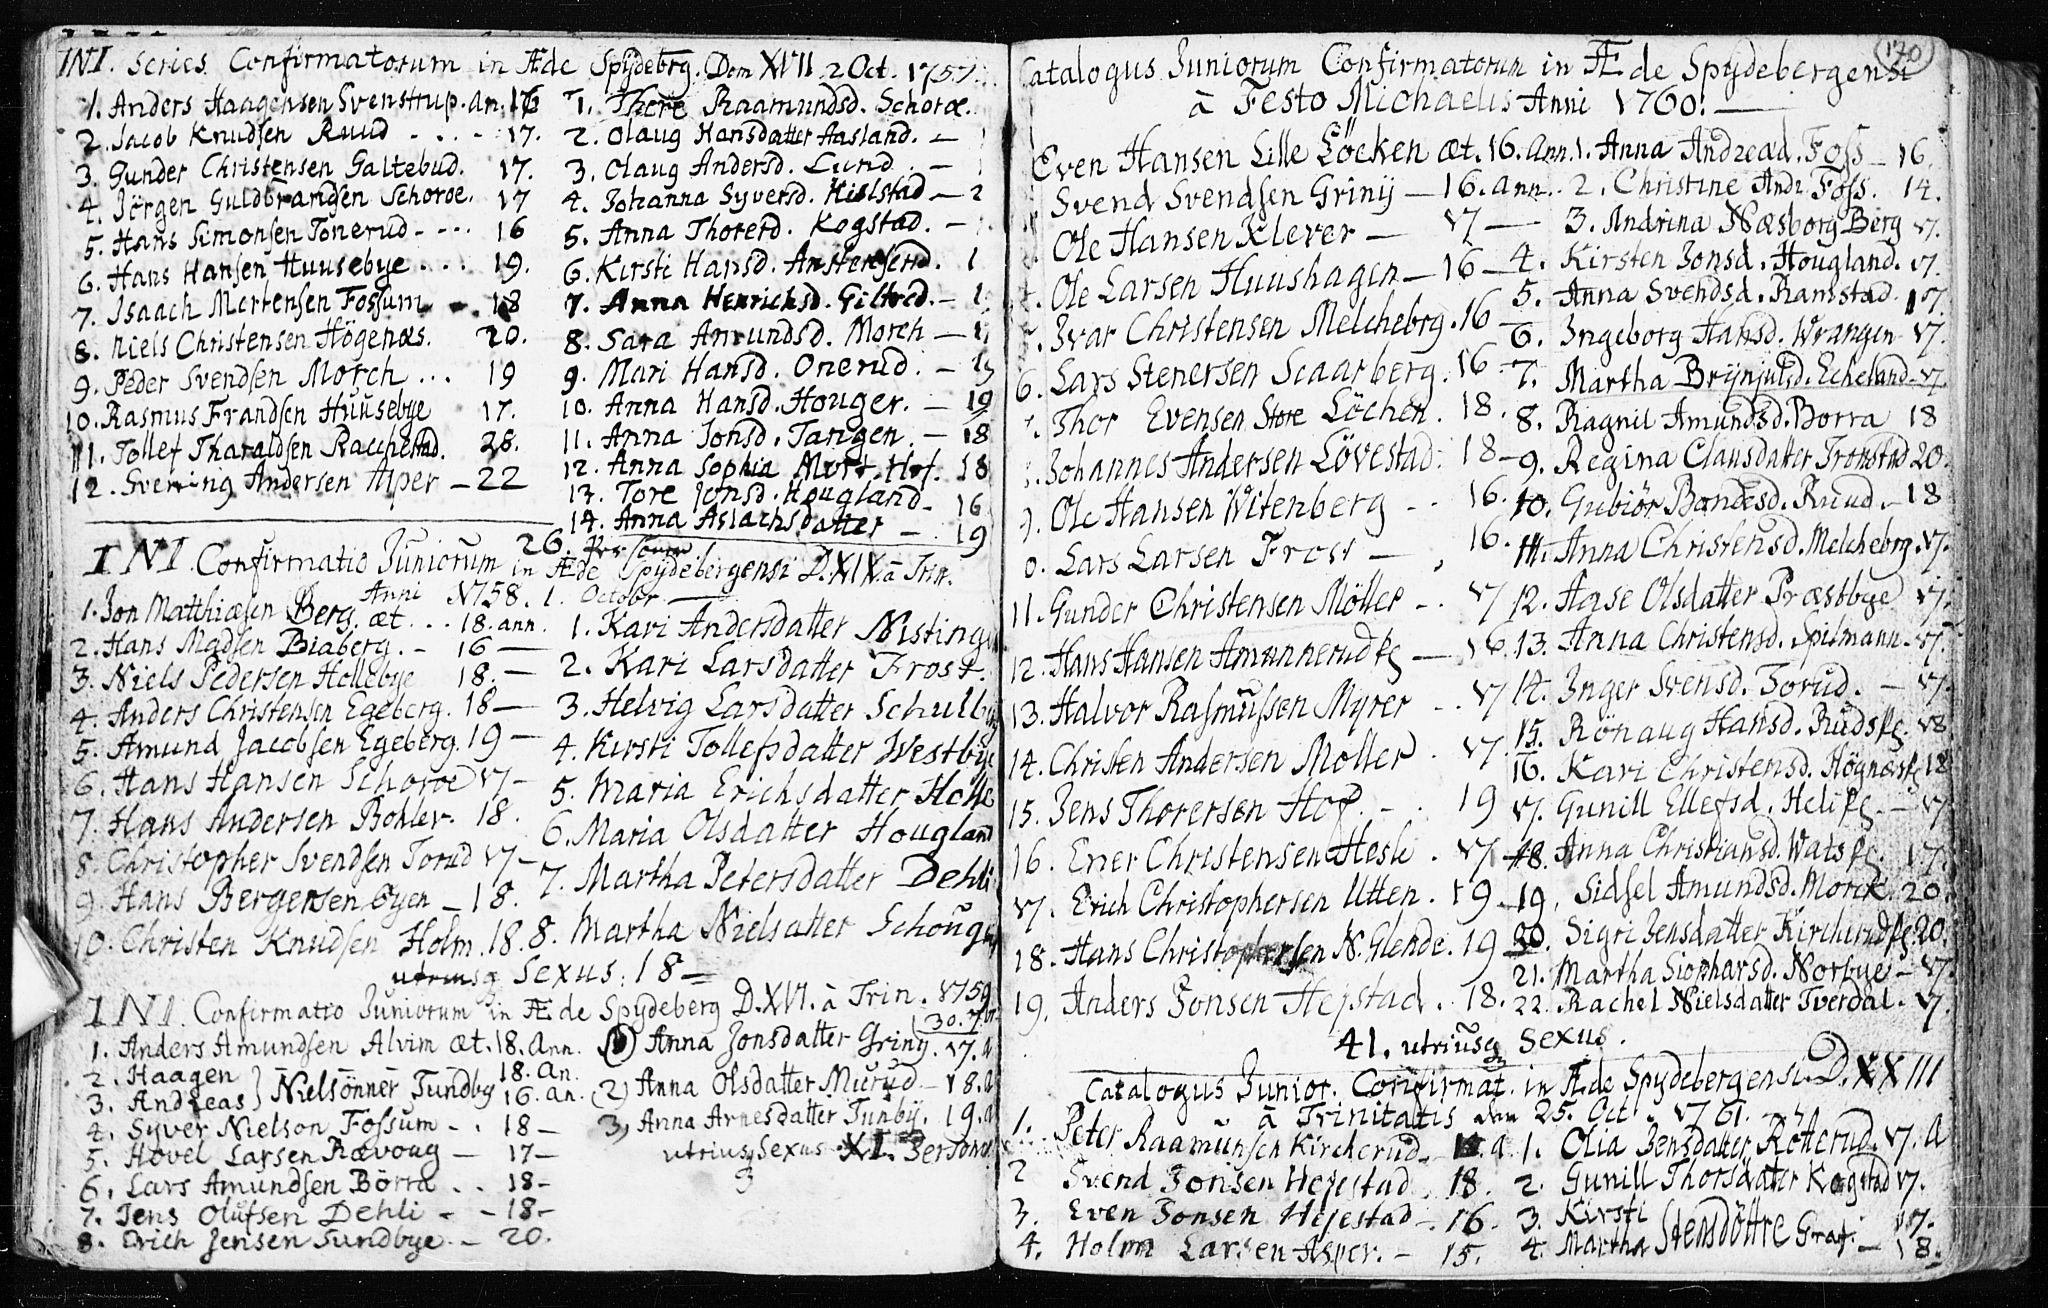 INI. Series Confirmatorum in Æde Spÿdebrg. Dom XVII 2 Oct. 1757.
1. Anders Haagensen Svenstrup. An. 16
2. Jacob Knudsen Ruud - . . - 17.
3. Gunder Christensen Galtebud. 17.
4. Jörgen Guldbrandsen Schoroe. 17
5. Hans Simonsen Tonerud - - - 16
6. Hans Hansen Huusebye . . . 19.
7. Isaach Mortensen Fossum 18
8. Niels Christensen Högenæs. 20.
9. Peder Svendsen Morch . . . 19
10. Rasmus Frandsen Huusebye 17.
11. Tollef Tharaldsen Racchestad. 28.
12. Svenning Andersen Asper - 22
1. There Raamundsd. Schoroe.
2. Olaug Hansdatter Aasland. -
3. Olaug Andersd. Lund. -
4. Johanna Syversd. Hielstad - 2
5. Anna Thorersd. Kogstad. -
6. Kirsti Hansd. 1
7. Anna Henrichsd. - 1
8. Sara Amundsd. Morch - 1
9. Mari Hansd. Onerud. - 19
10. Anna Hansd. Houger. - 19
11. Anna Jonsd. Tangen. - 18
12. Anna Sophia Mort. Hof. 18
13. Tore Jonsd. Hougland - 16
14. Anna Aslachsdatter - 19
26.
INI. Confirmatio Juniorum in Æde Spÿdebergensi D. XIX. à Trin.
Anni 1758. 1. Octobr.
1. Jon Matthiæsen Berg. æt. . . 18. ann.
2. Hans Madsen Biaberg. - 16 -
3. Niels Pedersen Hollebye 18. -
4. Anders Christensen Egeberg. 18 -
5. Amund Jacobsen Egeberg. 19 -
6. Hans Hansen Schoroe 17 -
7. Hans Andersen Bohler. 18.
8. Christopher Svendsen Torud 17 -
9. Hans Bergersen Byen - 18.
10. Christen Knudsen Holm. 18.
1. Kari Andersdatter Nisting
2. Kari Larsdatter Frost.
3. Helvig Larsdatter
4. Kirsti Tollefsdatter Westbye
5. Maria Erichsdatter Holle
6. Maria Olsdatter Hougland
7. Martha Petersdatter Dehli
8. Martha Nielsatter
utriusq Sexus: 18 =
INI. Confirmatio Juniorum in Æde Spydeberg D. XVI. à Trin. 1759
1. Anders Amundsen Alvim æt. 18. Ann.
2. Haagen 18. An.
3. Andreas } Nielsönner Tundby 16. an.
4. Syver Nielson Fossum - . 18 -
5. Hovel Larsen Rævoug - 17 -
6. Lars Amundsen Börra . . 18 -
7. Jens Olufsen Dehli - - 18 -
8. Erich Jensen Sundbye. - 20.
1) Anna Jonsdatter Griny. 17. A
2) Anna Olsdatter - 18. a
3) Anna Arnesdatter Tunbÿ. 19. a
utriusq Sexus XI. Person
170
Catalogus Juniorum Confirmatorum in Æde Spydebergensi
à Festo Michaelis Anni 1760. -
Even Hansen Lille Löcken æt. 16. Ann.
Svend Svendsen Grinÿ - 16. ann.
Ole Hansen Klever - 17 -
Ole Larsen Huushagen - 16 -
Ivar Christensen Melchebrg. 16
6. Lars Stenersen Scaarberg. 16
Thor Evensen Store Löchen. 18.
Johannes Andersen Lövestad. 18 -
9. Ole Hansen Witenberg - . 16.
0. Lars Larsen Frost - 16.
11. Gunder Christensen Möller - . 17
12. Hans Hansen Amunnerud - 16.
13. Halvor Rasmussen Myrer - . 17
14. Christen Andersen Moller . 17
15. Jens Thorersen Hof. - . 19
16. Ener Christensen Hesle . 17
17. Erich Christophersen Utten. 19
18. Hans Christophersen N. Glende. 19
19. Anders Jonsen Hejstad. 18.
1. Anna Andread. Foss - 16.
2. Christine Andr. Foss. 14.
3. Andrina Næsborg Berg 17.
4. Kirsten Jonsd. Hougland. 17.
5. Anna Svendsd. Ramstad. 17.
6. Ingeborg Hansd. Wrangen 17.
7. Martha Brÿnjulsd. Echeland - 17.
8. Ragnil Amundsd. Borra 18
9. Regina Clausdatter Tronstad 20.
10. Gubiör Bondesd. Ruud - 18
11. Anna Christensd. Melchebrg. 17.
12. Aase Olsdatter Præstbye 17.
13. Anna Christensd. Spilmann. 17.
14. Inger Svensd. Torud. - 17.
15. Rönaug Hansd. Ruds 18
16. Kari Christensd. Högnæs 18
17. Gunill Ellefsd. Heli - 17
18. Anna Christiansd. Wats 17
19. Sidsel Amundsd. Morck. 20.
20. Sigri Jensdatter Kircherud 20.
21. Martha Siophарsd. Norbye - 17.
22. Rachel Nielsdatter Tverdal - 17.
41. utriusq Sexus.
Catalogus Junior. Confirmat. in Æde Spydebergensi D. XXIII
à Trinitatis den 25. Oct. 1761.
1. Peter Raamunsen Kircherud. a
2 Svend Jonsen Hejestad. 18.
3. Even Jonsen Hejestad -. 16.
4. Holm Larsen Asper. - 15.
1. Olia Jensdatter Rotterud. 17. A
2. Gunill Thorsdatter Kogstad 17.
3. Kirsti 17.
4. Martha Stensdöttre Graf. - 18.